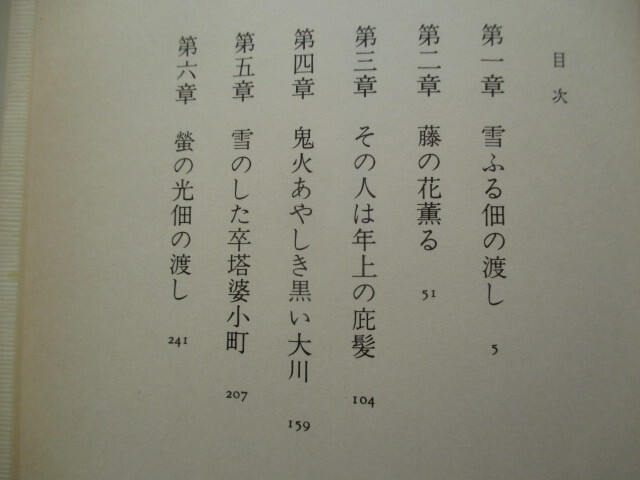 目次
第一章 雪ふる佃の渡し 5
第二章 藤の花薫る 51
第三章 その人は年上の庇髪 104
第四章 鬼火あやしき黒い大川 159
第五章 雪のした卒塔婆小町 207
第六章 螢の光佃の渡し 241